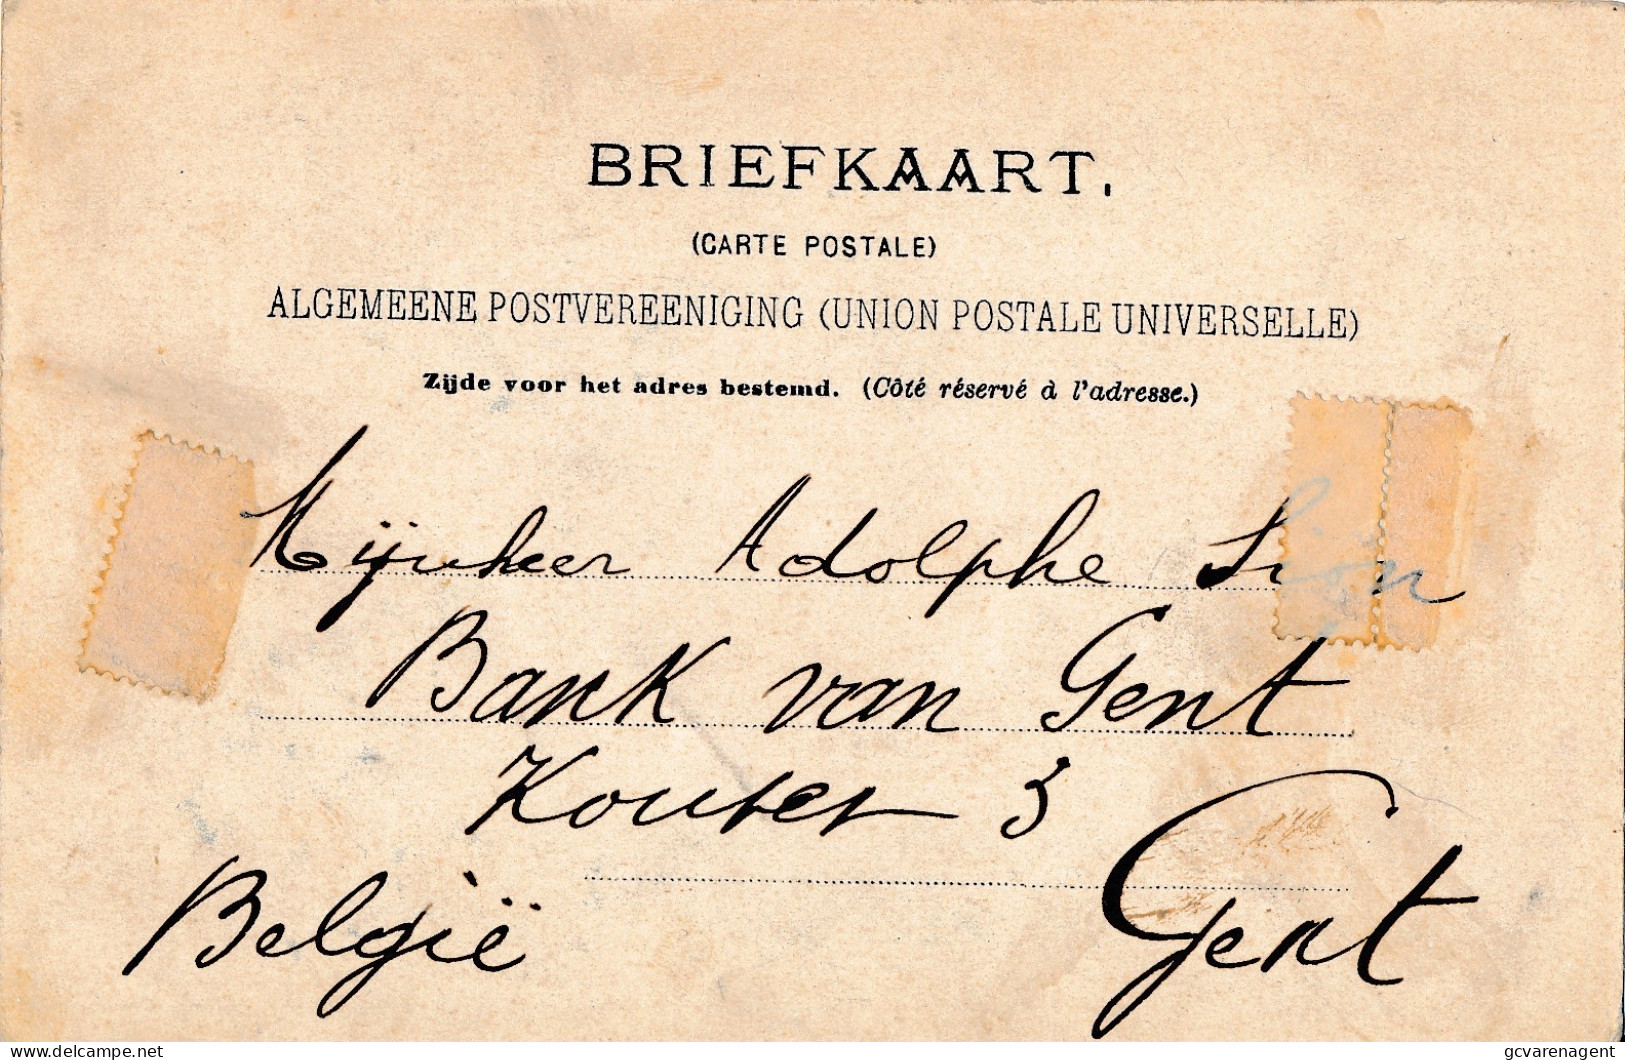 BRIEFKAART.
(CARTE POSTALE)
ALGEMEENE POSTVEREENIGING (UNION POSTALE UNIVERSELLE)
Zijde voor het adres bestemd. (Côté réservé à l'adresse.)
Mijnheer Adolphe Sion
Bank van Gent
Kouter 3
Gent
België
delcampe.net
gcvarenagent